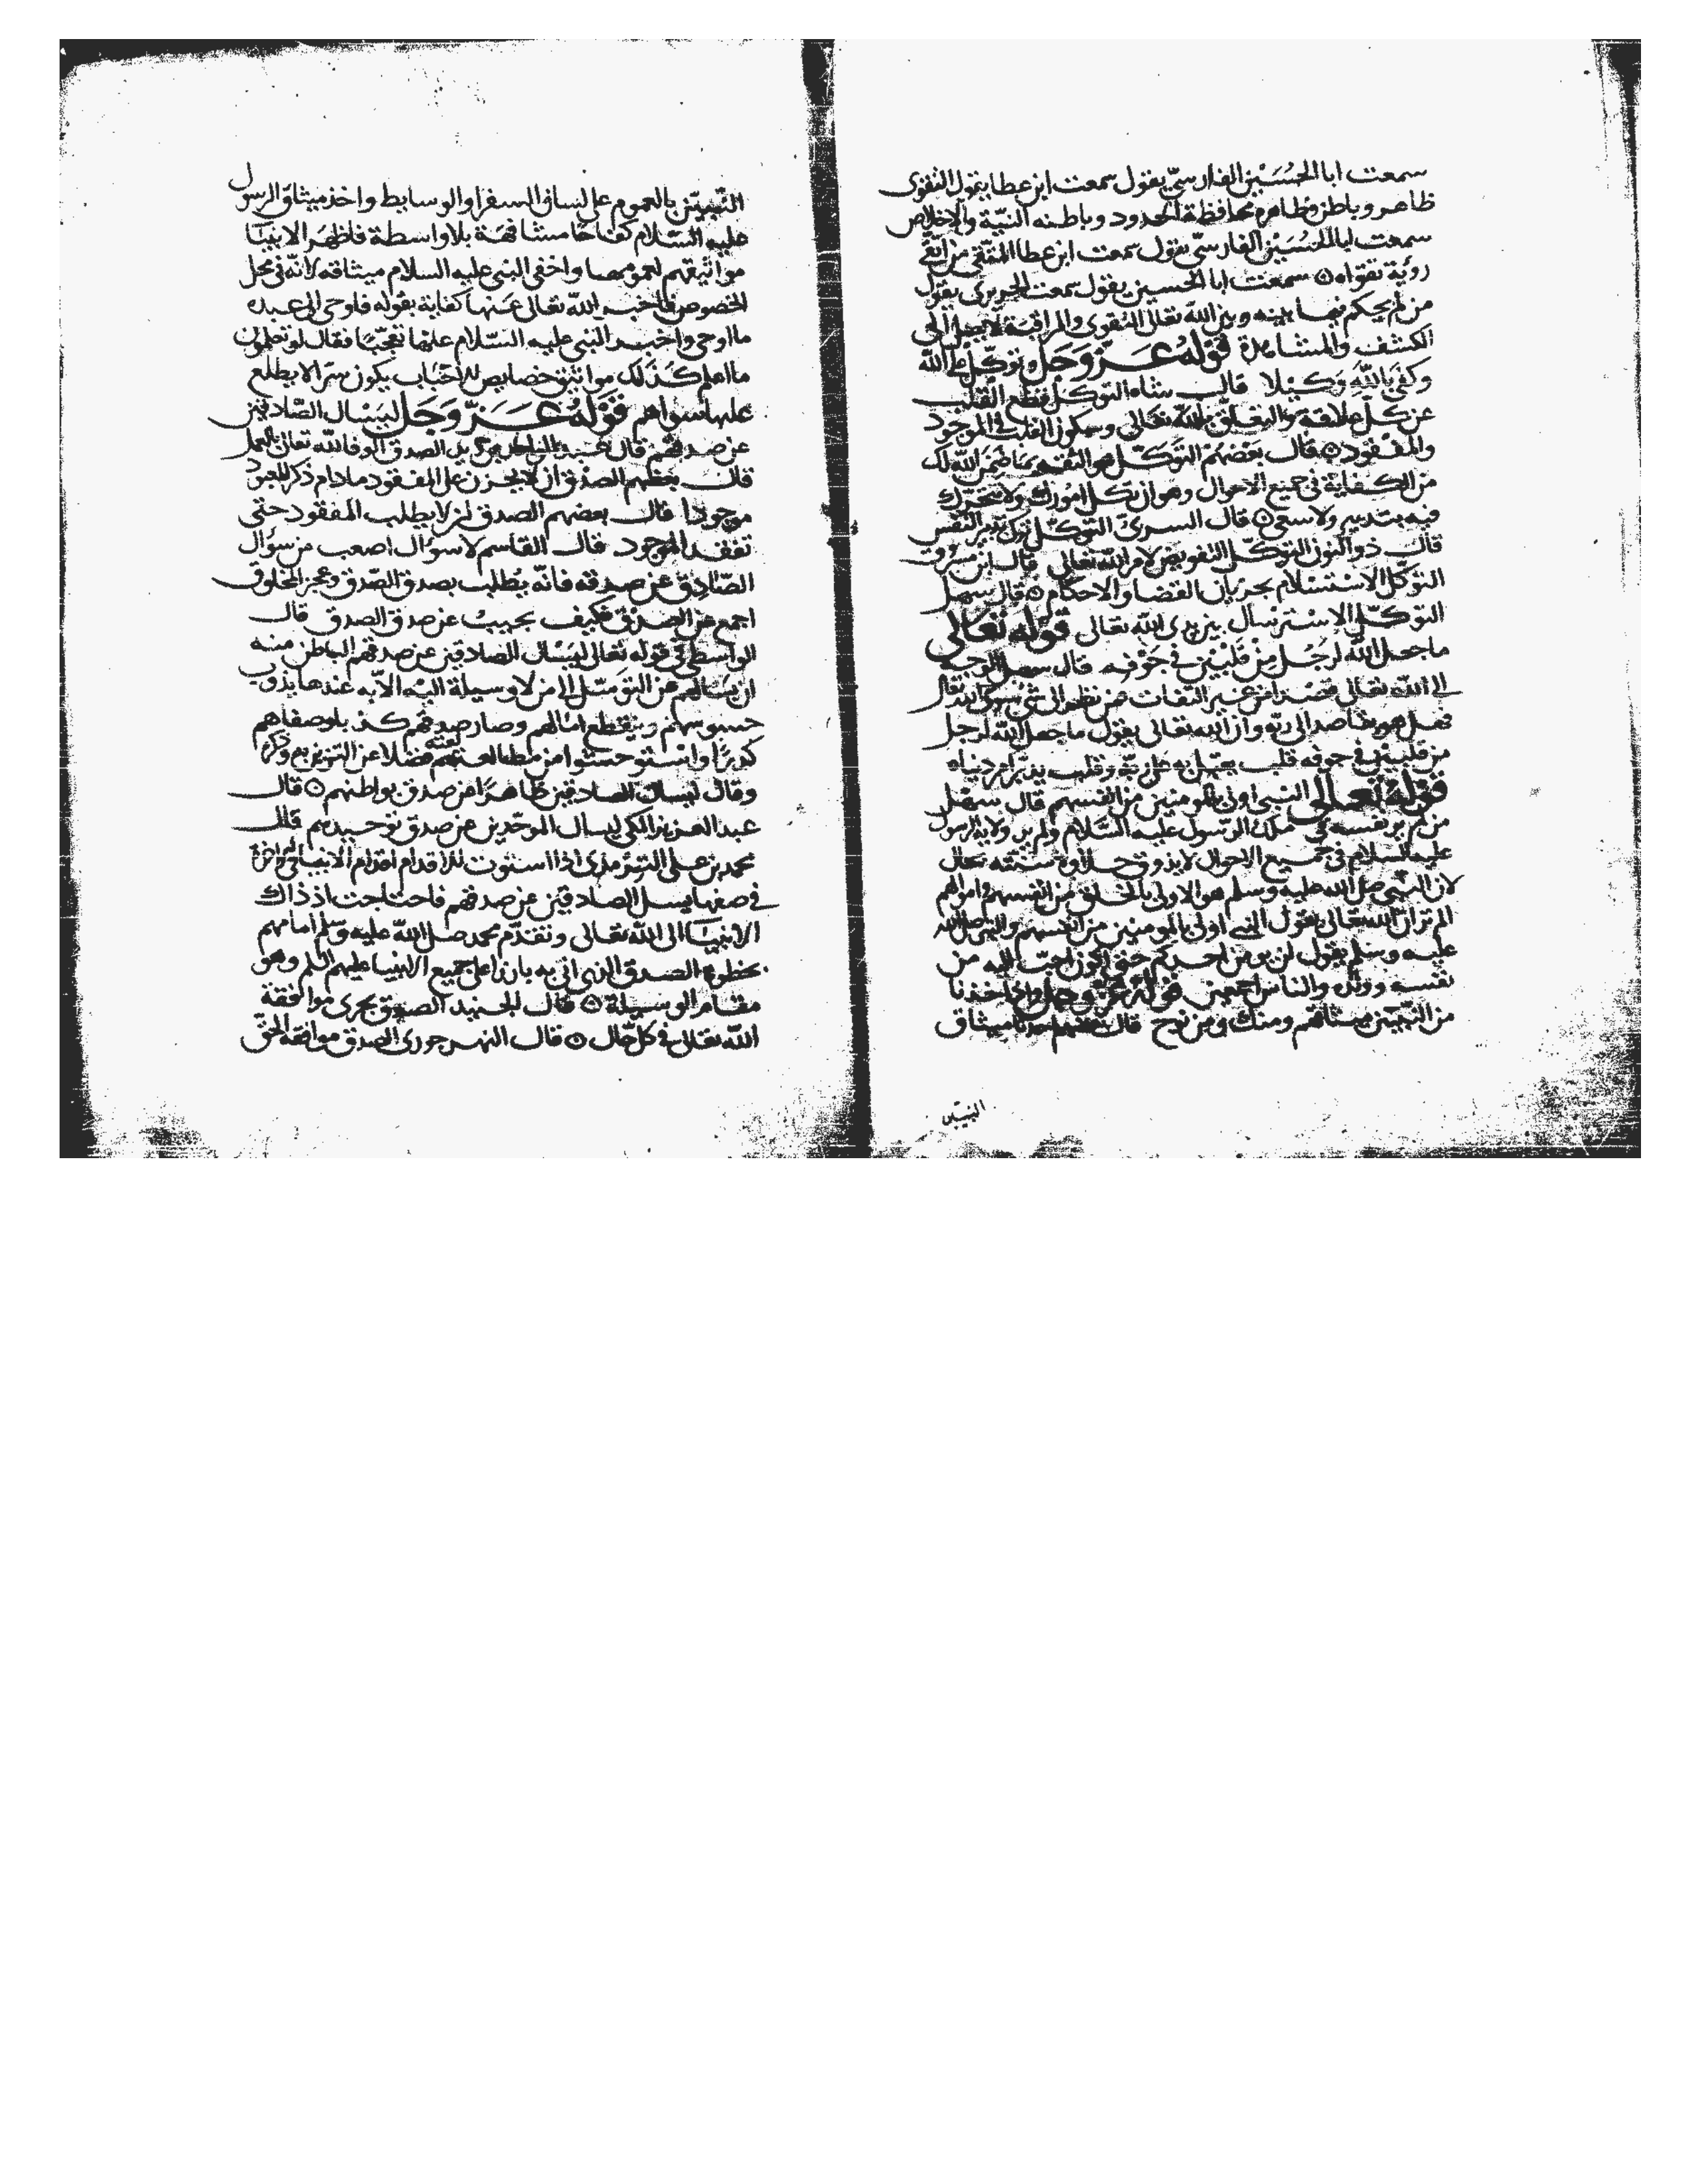 سمعت ابا الحسين الفارسي يقول سمعت ابن عطا يقول التقوى
ظاهر وباطن وظاهره محافظة الحدود وباطنه النية والاخلاص
سمعت ابا الحسين الفارسي يقول سمعت ابن عطا المتقي من اتقى
رؤية تقواه ۞ سمعت ابا الحسين يقول سمعت الجريري يقول
من لم يحكم فيما بينه وبين الله تعالى التقوى والمراقبة لا يصل الى
الكشف والمشاهدة قوله عز وجل وتوكل على الله
وكفى بالله وكيلا قال شاه التوكل قطع القلب
عن كل علاقة والتعلق بالله تعالى وسكون القلب في الموجود
والمفقود ۞ قال بعضهم التوكل هو الثقة بما ضمن الله لك
من الكفاية في جميع الاحوال وهو ان تكل امورك ولا تتحرك
فيه بتدبير ولا سعي ۞ قال السري التوكل ترك تدبير النفس
قال ذو النون التوكل التفويض لامر الله تعالى قال ابن مسروق
التوكل الاستسلام بجريان القضا والاحكام ۞ قال سهل
التوكل الاسترسال بين يدي الله تعالى قوله تعالى
ما جعل الله لرجل من قلبين في جوفه قال سهل التوجه
الى الله تعالى قصدا من غير التفات فمن نظر الى شي سوى الله تعالى
فما هو بقاصد الى ربه وان الله تعالى يقول ما جعل الله لرجل
من قلبين في جوفه قلب يقبل به على ربه وقلب يدبر امر دنياه
قوله تعالى النبي اولى بالمومنين من انفسهم قال سهل
من لم ير نفسه في ملك الرسول عليه السلام ولم ير ولاية الرسول
عليه السلام في جميع الاحوال لا يذوق حلاوة سنته بحال
لان النبي صلى الله عليه وسلم هو الاولى بالخلق من انفسهم واموالهم
الم تر ان الله تعالى يقول النبي اولى بالمومنين من انفسهم والنبي صلى الله
عليه وسلم يقول لن يومن احدكم حتى اكون احب اليه من
نفسه وولده والناس اجمعين قوله عز وجل واذ اخذنا
من النبيين ميثاقهم ومنك ومن نوح قال بعضهم اخذنا ميثاق
النبيين
النبيين بالعموم على لسان السفرا والوسايط واخذ ميثاق الرسول
عليه السلام كفاحا مشافهة بلا واسطة فاظهر الانبيا
مواثيقهم لعمومها واخفى النبي عليه السلام ميثاقه لانه في محل
الخصوص فاخبر الله تعالى عنها كفاية بقوله فاوحى الى عبده
ما اوحى واخبر النبي عليه السلام علنا تعجبا فقال لو تعلمون
ما اعلم كذلك مواثيق خصايص للاحباب يكون سرا لا يطلع
عليها سواهم قوله عز وجل ليسال الصادقين
عن صدقهم قال عبد الواحد بن زيد الصدق الوفا لله تعالى بالعمل
قال بعضهم الصدق ان لا يحزن على المفقود ما دام ذكر المعبود
موجودا قال بعضهم الصدق لمن لا يطلب المفقود حتى
تفقد الموجود قال القاسم لا سوال اصعب من سوال
الصادق عن صدقه فانه يطلب بصدق الصدق وعجز المخلوق
اجمع عن الصدق فكيف يجيب عن صدق الصدق قال
الواسطي في قوله تعالى ليسال الصادقين عن صدقهم الباطن منه
ان يسالهم عن التوسل الى من لا وسيلة اليه الا به عندها يذوب
حسبوسهم وينقطع امالهم وصار صدقهم كذبا وصفاهم
كدرا واستوحشوا من مطالعتهم فضلا عن التزين به وذكره
وقال ليسال الصادقين ظاهرا عن صدق بواطنهم ۞ قال
عبد العزيز المكي ليسال الموحدين عن صدق توحيدهم قال
محمد بن علي الترمذي اذا استوت للاقدام اقدام الانبيا في اخرة
في صفها يسل الصادقين عن صدقهم فاحتاجت اذ ذاك
الانبيا الى الله تعالى وتقدم محمد صلى الله عليه وسلم امامهم
بخطوة الصدق الذي اتى به بارزا على جميع الانبيا عليهم السلم وهو
مقام الوسيلة ۞ قال الجنيد الصدق يجري موافقة
الله تعالى في كل حال ۞ قال النهرجوري الصدق موافقة الحق